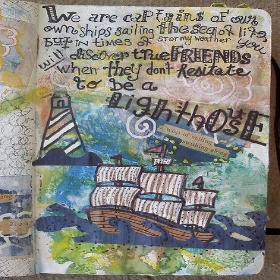 We are captains of our
own ships sailing the sea of life,
BUT in times of stormy weather, you
will discover true FRIENDS
when they don't hesitate
to be a
lighthOUSE